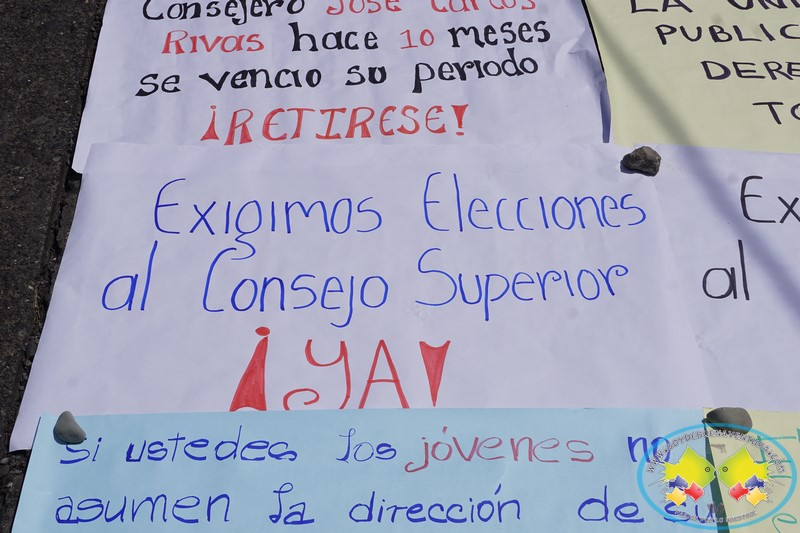 Consejero José Carlos
Rivas hace 10 meses
se vencio su periodo
¡RETIRESE!
LA UNI
PUBLIC
DERE
TO
Exigimos Elecciones
al Consejo Superior
¡YA!
Ex
al
Si ustedes los jóvenes no
asumen la dirección de su